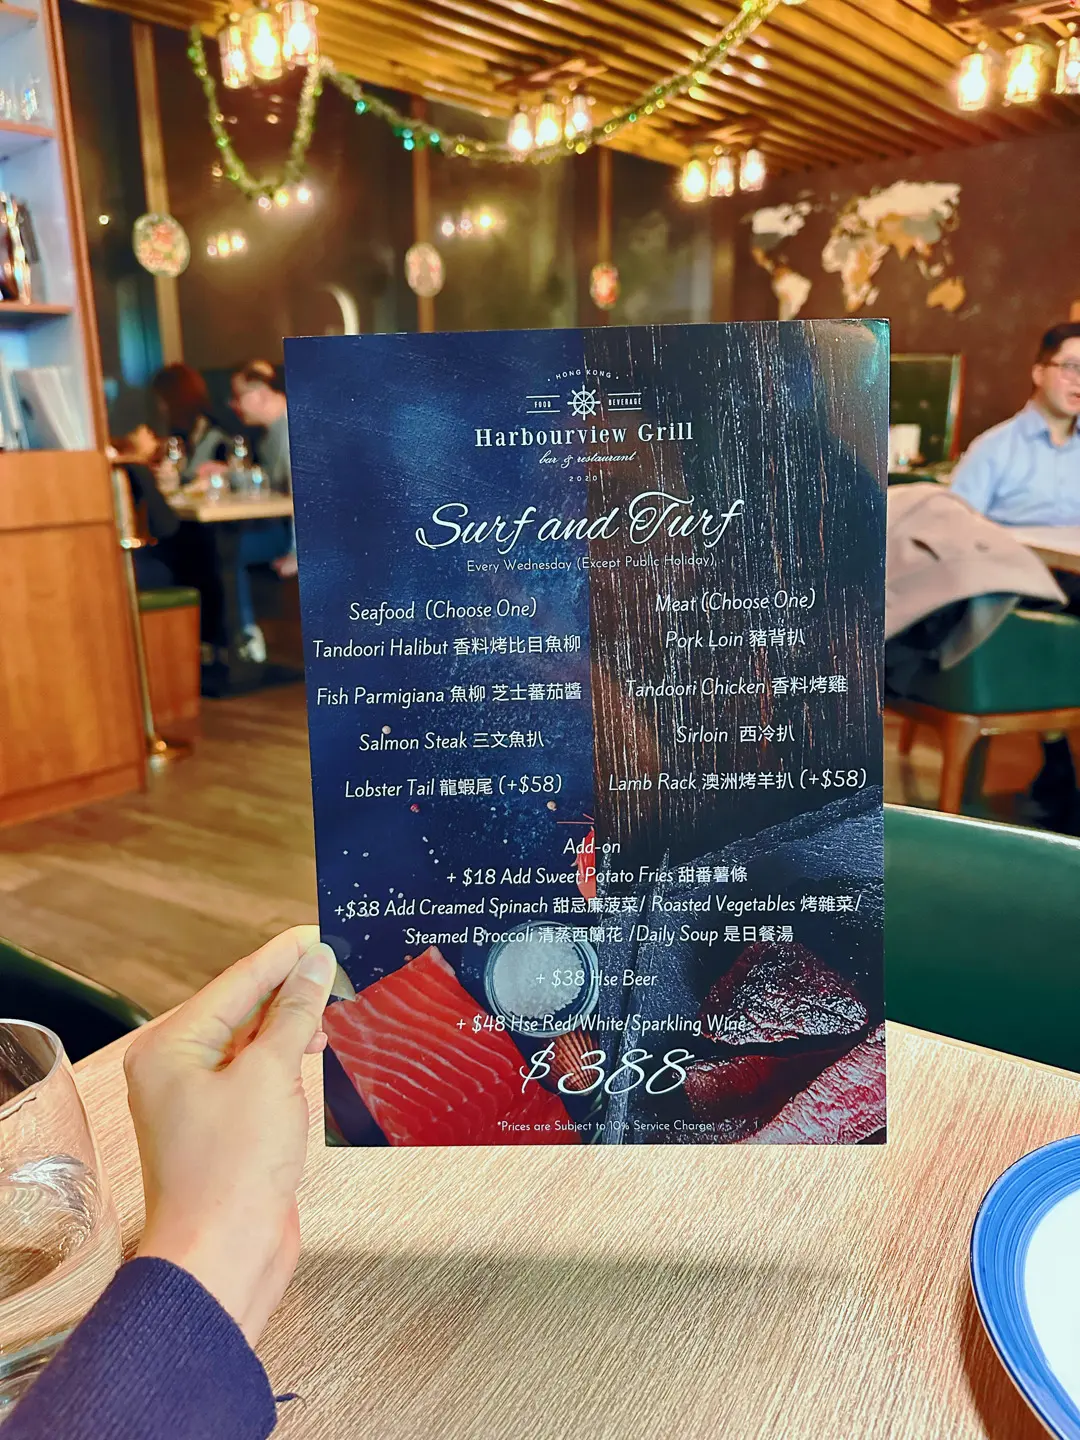 HONG KONG
FOOD BEVERAGE
Harbourview Grill
bar & restaurant
2020
Surf and Turf
Every Wednesday (Except Public Holiday)
Seafood (Choose One)
Tandoori Halibut 香料烤比目魚柳
Fish Parmigiana 魚柳 芝士蕃茄醬
Salmon Steak 三文魚扒
Lobster Tail 龍蝦尾 (+$58)
Meat (Choose One)
Pork Loin 豬背扒
Tandoori Chicken 香料烤雞
Sirloin 西冷扒
Lamb Rack 澳洲烤羊扒 (+$58)
Add-on
+ $18 Add Sweet Potato Fries 甜番薯條
+$38 Add Creamed Spinach 甜忌廉菠菜/ Roasted Vegetables 烤雜菜/
Steamed Broccoli 清蒸西蘭花 /Daily Soup 是日餐湯
+ $38 Hse Beer
+ $48 Hse Red/White/Sparkling Wine
$388
*Prices are Subject to 10% Service Charge